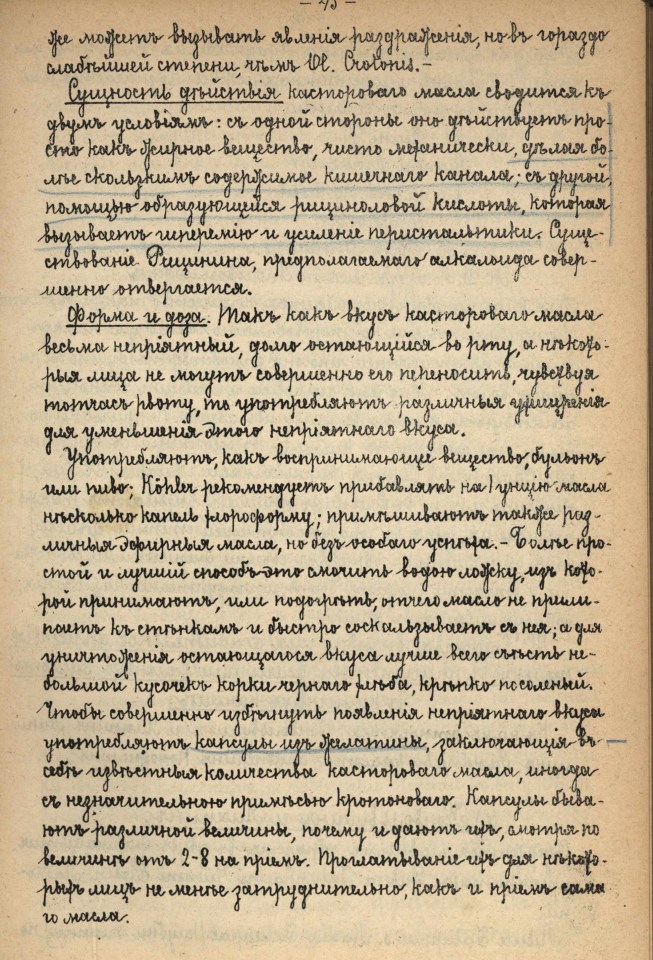 — 45 —
же можетъ вызывать явленія раздраженія, но въ гораздо
слабѣйшей степени, чѣмъ Ol. Crotonis. –
Сущность дѣйствія касторового масла сводится къ
двумъ условіямъ: съ одной стороны оно дѣйствуетъ про-
сто какъ жирное вещество, чисто механически, дѣлая бо-
лѣе скользкимъ содержимое кишечнаго канала; съ другой,
помощью образующейся рициноловой кислоты, которая
вызываетъ гиперемію и усиленіе перистальтики. Суще-
ствованіе Рицинина, предполагаемаго алкалоида совер-
шенно отвергается.
Форма и доза. Такъ какъ вкусъ касторového масла
весьма непріятный, долго остающійся во рту, а нѣкото-
рыя лица не могутъ совершенно его переносить, чувствуя
тотчасъ рвоту, то употребляютъ различныя ухищренія
для уменьшенія этого непріятнаго вкуса.
Употребляютъ, какъ воспринимающее вещество, бульонъ
или пиво; Köhler рекомендуетъ прибавлять на 1 унцію масла
нѣсколько капель хлороформу; примѣшиваютъ также раз-
личныя эфирныя масла, но безъ особаго успѣха. – Болѣе про-
стой и лучшій способъ это смочить водою ложку, изъ кото-
рой принимаютъ, или подогрѣть, отчего масло не прили-
паетъ къ стѣнкамъ и быстро соскальзываетъ съ нея; а для
уничтоженія остающагося вкуса лучше всего съѣсть не-
большой кусочекъ корки чернаго хлѣба, крѣпко посоленый.
Чтобы совершенно избѣгнуть появленія непріятнаго вкуса
употребляютъ капсулы изъ желатины, заключающія въ
себѣ извѣстныя количества касторового масла, иногда
съ незначительною примѣсью кротоноваго. Капсулы быва-
ютъ различной величины, почему и даютъ ихъ, смотря по
величинѣ отъ 2-8 на пріемъ. Проглатываніе ихъ для нѣкото-
рыхъ лицъ не менѣе затруднительно, какъ и пріемъ сама
го масла.